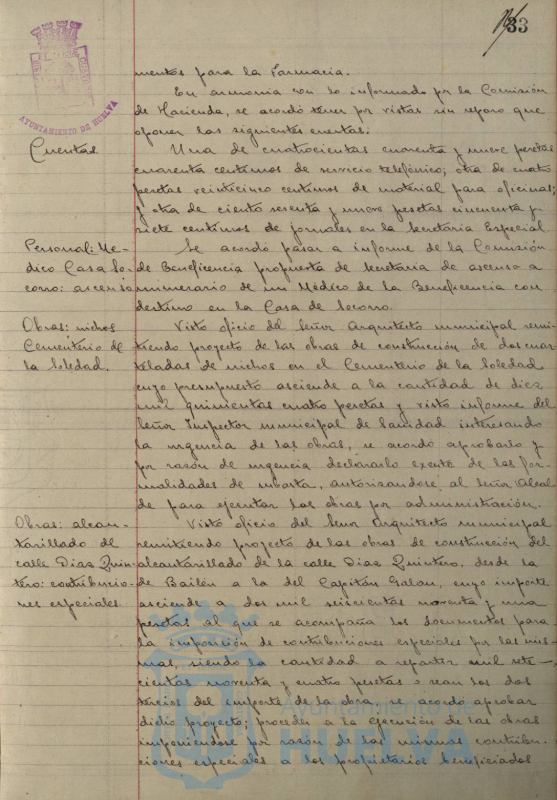 33
AYUNTAMIENTO DE HUELVA
mentos para la Farmacia.
En armonia con lo informado por la Comisión
de Hacienda, se acordó tener por vistas sin reparo que
oponer las siguientes cuentas:
Cuentas
Una de cuatrocientas cuarenta y nueve pesetas
cuarenta centimos de servicio telefónico; otra de cuatro
pesetas veinticinco centimos de material para oficinas;
y otra de ciento sesenta y nueve pesetas cincuenta y
siete centimos de jornales en la Secretaria Especial
Personal: Me-
dico Casa So-
corro: ascenso
Se acordó pasar a informe de la Comisión
de Beneficencia propuesta de Secretaria de ascenso a
numerario de un Médico de la Beneficencia con
destino en la Casa de Socorro.
Obras: nichos
Cementerio de
la Soledad.
Visto oficio del Señor Arquitecto municipal remi-
tiendo proyecto de las obras de construcción de dos cuar-
teladas de nichos en el Cementerio de la Soledad
cuyo presupuesto asciende a la cantidad de diez
mil quinientas cuatro pesetas y visto informe del
Señor Inspector municipal de Sanidad interesando
la urgencia de las obras, se acordó aprobarlo y
por razón de urgencia declararlo exento de las for-
malidades de subasta, autorizandose al Señor Alcal
de para ejecutar las obras por administración.
Obras: alcan-
tarillado del
calle Diaz Quin-
tero: contribucio-
nes especiales
Visto oficio del Señor Arquitecto municipal
remitiendo proyecto de las obras de construcción del
alcantarillado de la calle Diaz Quintero, desde la
de Bailén a la del Capitán Galan, cuyo importe
asciende a dos mil seiscientas noventa y una
pesetas al que se acompaña los documentos para
la imposición de contribuciones especiales por las mis-
mas, siendo la cantidad a repartir mil sete-
cientas noventa y cuatro pesetas o sean los dos
tercios del importe de la obra, se acordó aprobar
dicho proyecto; proceder a la ejecución de las obras
imponiendose por razón de las mismas contribu-
ciones especiales a los propietarios beneficiados
Ayuntamiento de
HUELVA